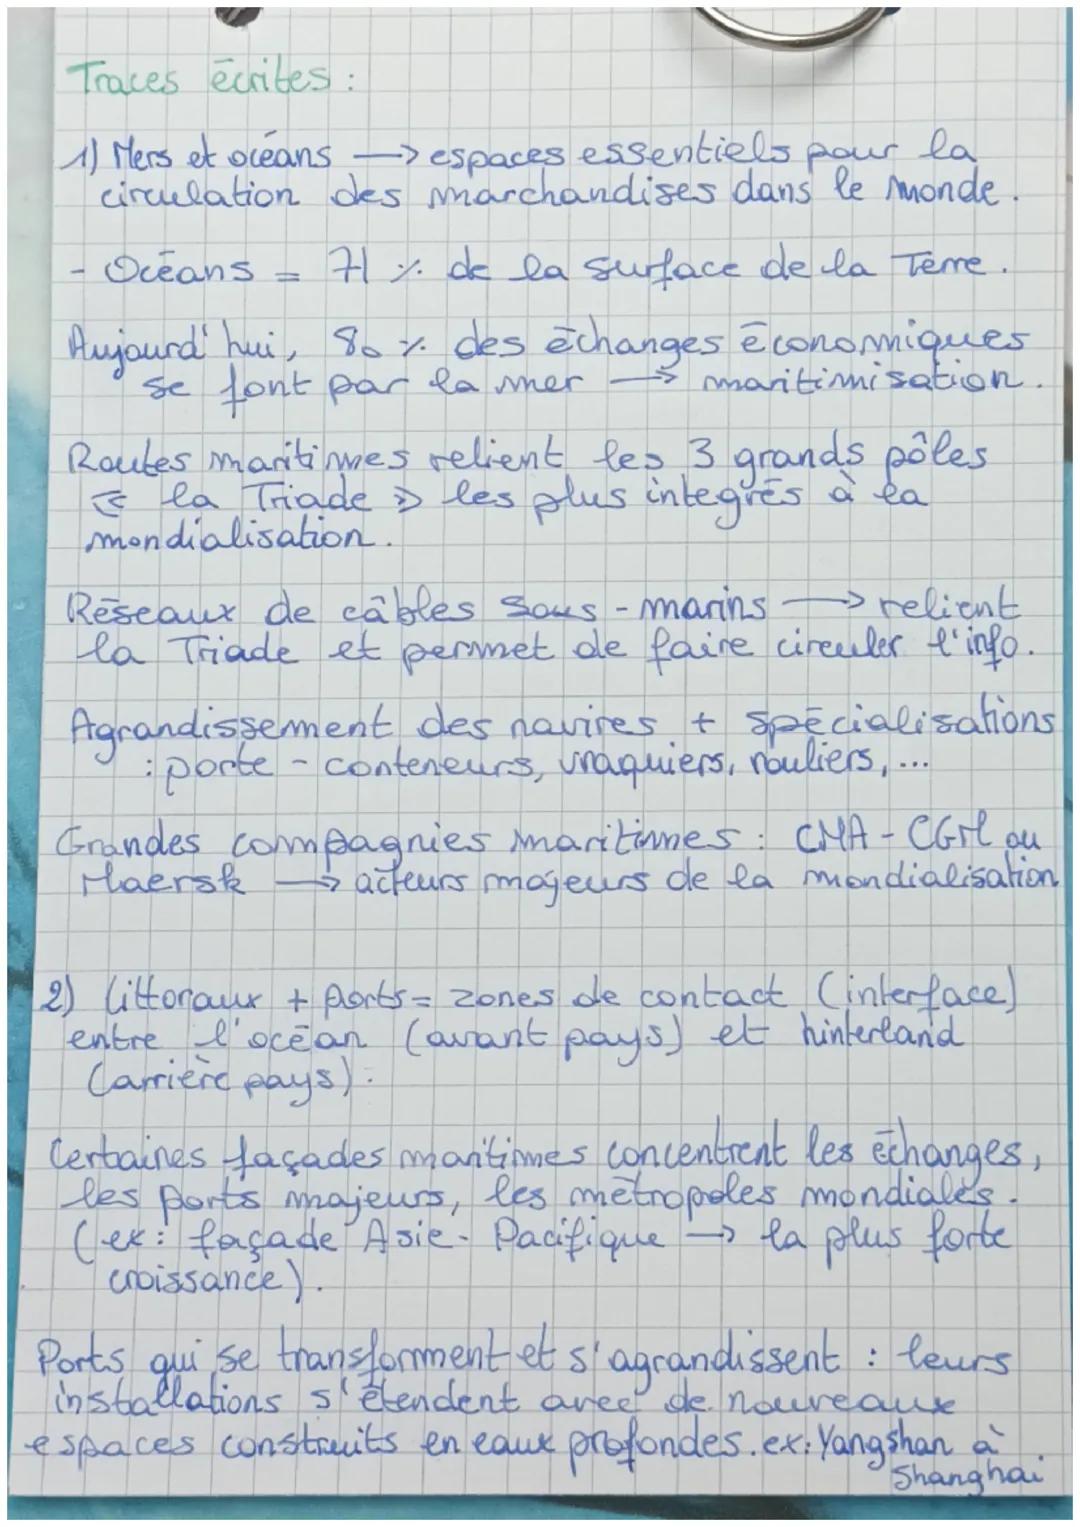 Traces écrites :
1) Mers et océans → espaces essentiels pour la
circulation des marchandises dans le monde.
- Océans = 71 % de la surface de la Terre.
Aujourd'hui, 80 % des échanges économiques
se font par la mer → maritimisation.
Routes maritimes relient les 3 grands pôles
« la Triade » les plus integrés à la
mondialisation.
Réseaux de câbles sous-marins → relient
la Triade et permet de faire circuler l'info.
Agrandissement des navires + spécialisations
: porte-conteneurs, vraquiers, rouliers, ...
Grandes compagnies maritimes : CMA-CGM ou
Maersk → acteurs majeurs de la mondialisation
2) Littoraux + ports = zones de contact (interface)
entre l'océan (avant pays) et hinterland
(arrière pays).
Certaines façades maritimes concentrent les échanges,
les ports majeurs, les métropoles mondiales.
(ex: façade Asie-Pacifique → la plus forte
croissance).
Ports qui se transforment et s'agrandissent : leurs
installations s'étendent avec de nouveaux
espaces construits en eaux profondes. ex: Yangshan à
Shanghai